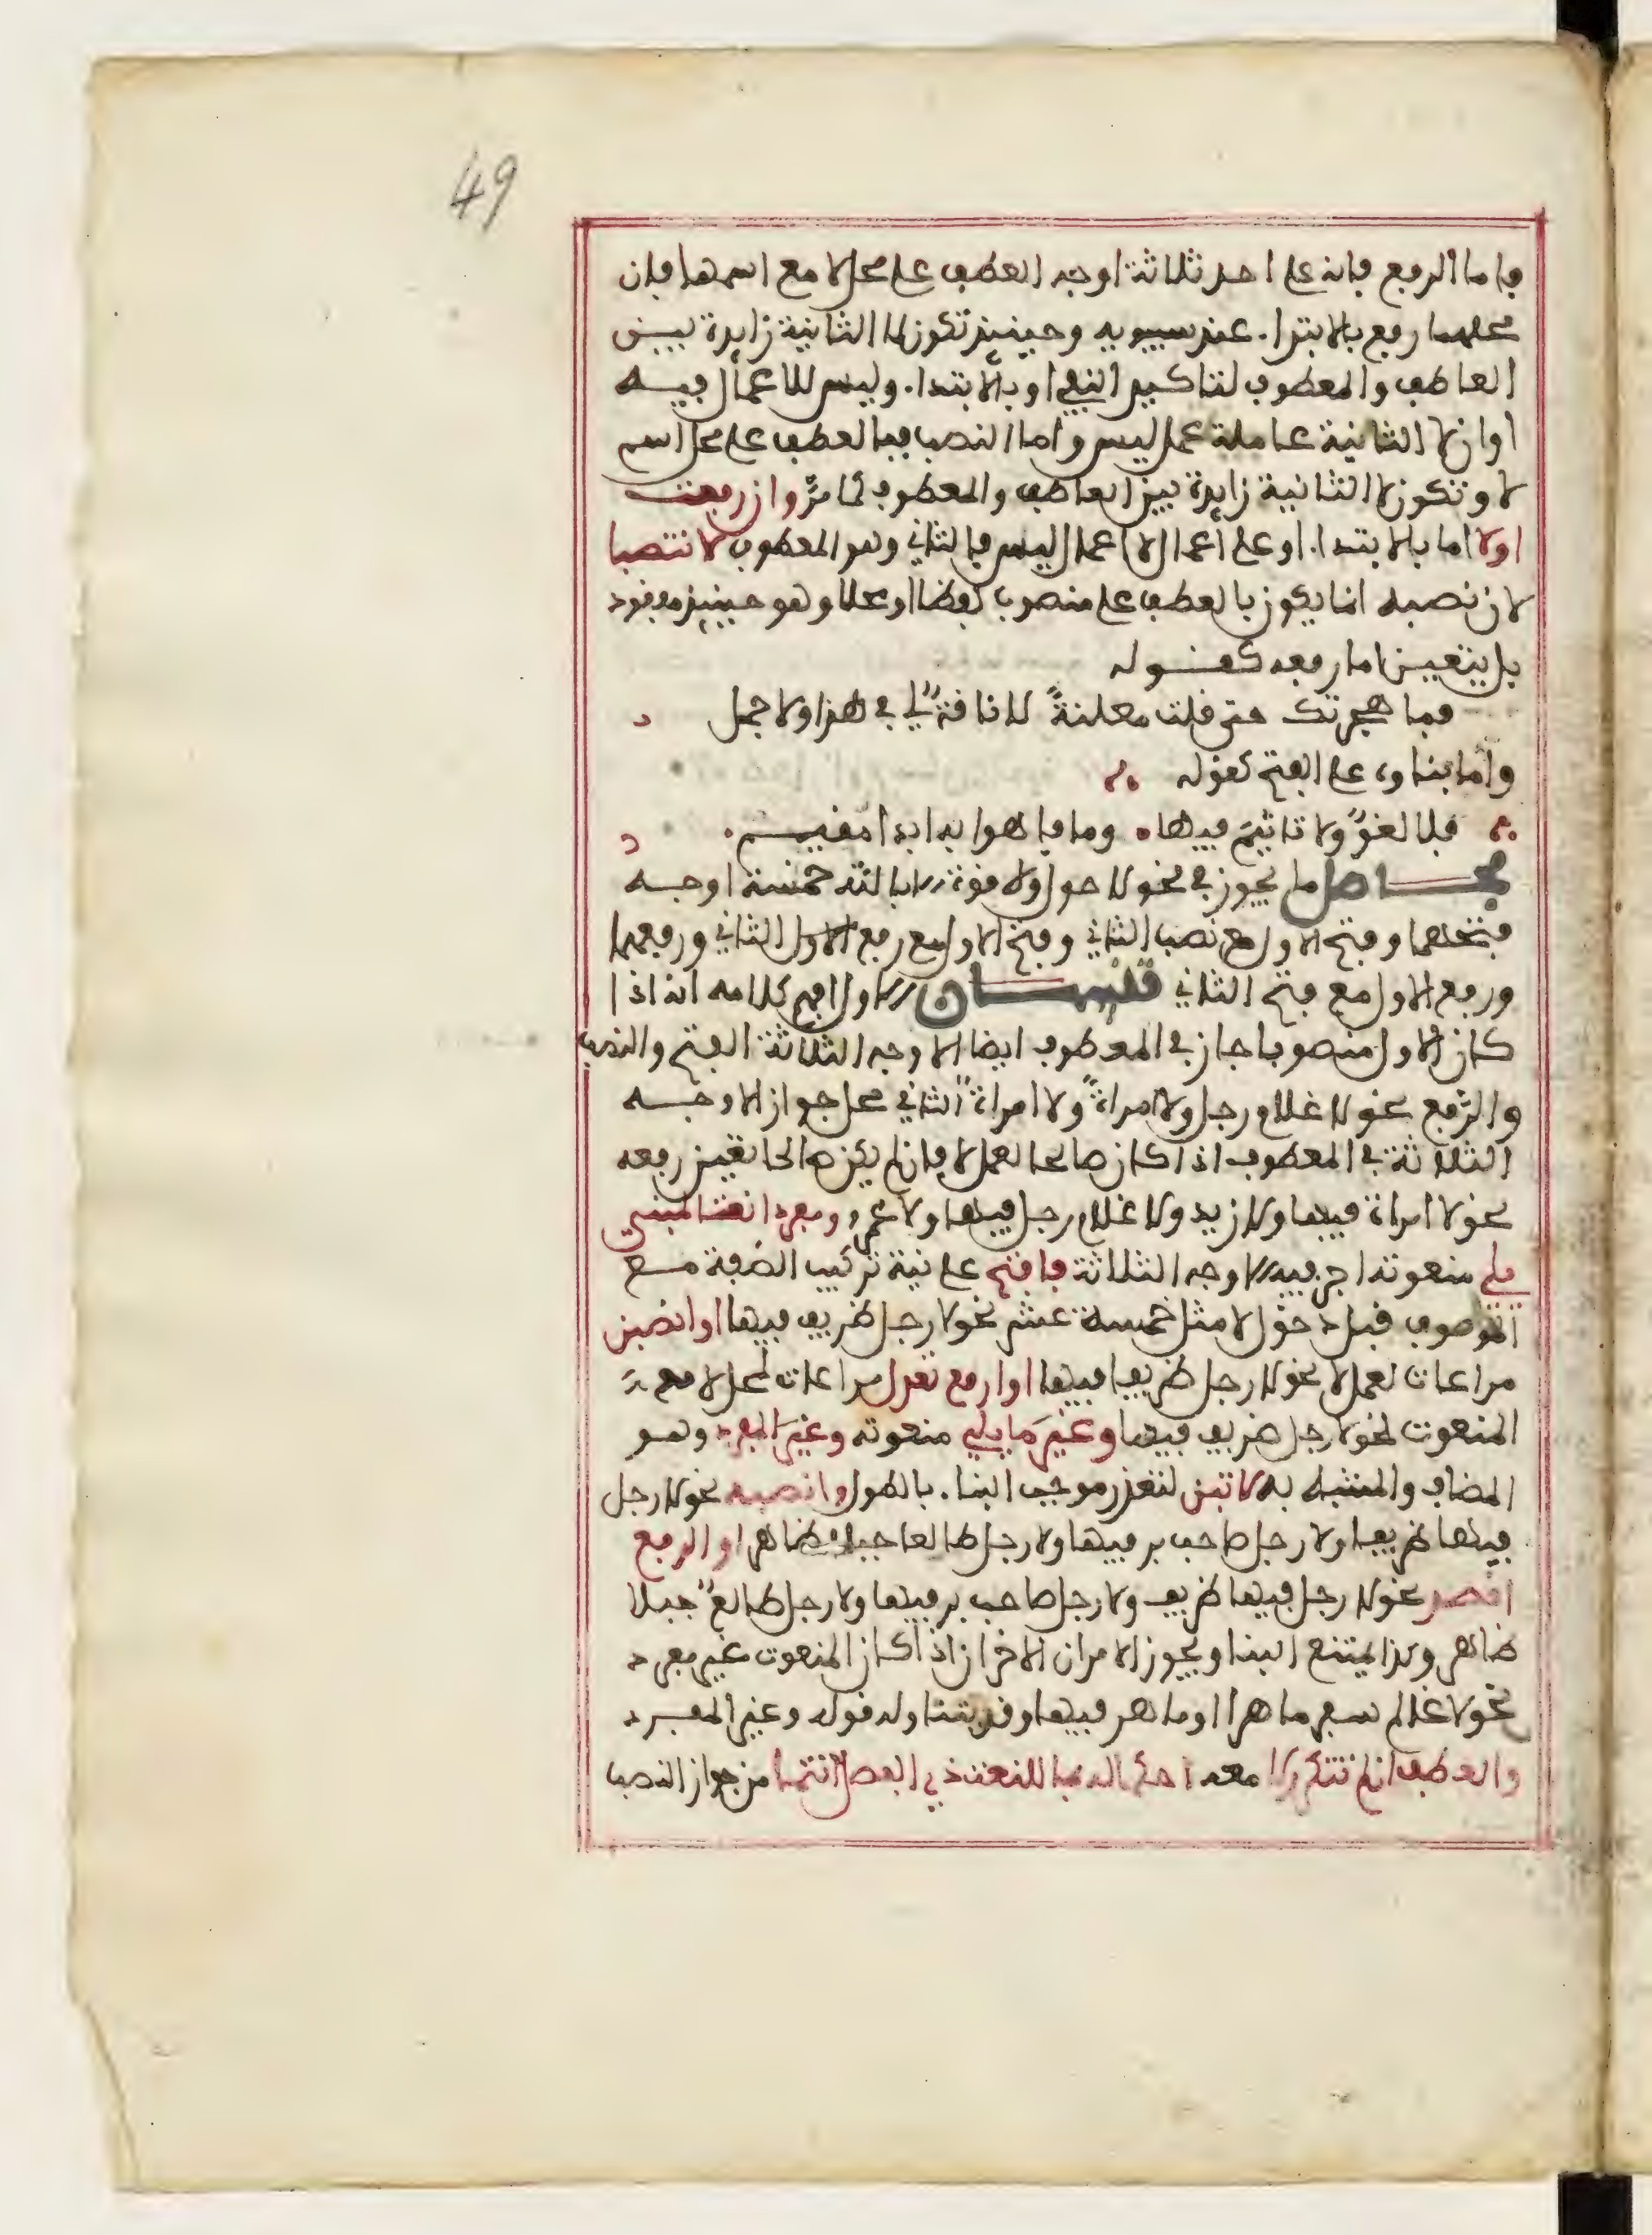 49
فاما الرفع فانه على احد ثلاثة اوجه العطف على محل لا مع اسمها فان
محلهما رفع بالابتدا. عند سيبويه وحينئذ تكون لا الثانية زايدة بيـن
العاطف والمعطوف لتاكيد النفي او بالابتدا. وليس للا عمل فيـه
او ان لا الثانية عاملة عمل ليس واما النصب فبالعطف على محل اسم
لا وتكون لا الثانية زايدة بين العاطف والمعطوف كما مرّ وان رفعت
اولا اما بالابتدا. او على اعمال لا عمل ليس فالثاني وهو المعطوف لا تنصبا
لان نصبه انما يكون بالعطف على منصوب لفظا او محلا وهو حينئذ مفقود
بل يتعين اما رفعه كقـوله
فما هجرتك حتى قلت معلنةً لا ناقةٌ لي في هذا ولا جمل
واما بناوه على الفتح كقوله
فلا لغوٌ ولا تاثيمَ فيها. وما فاهوا به ابدا مقيـم.
فحـاصل ما يجوز في نحو لا حول ولا قوة الا بالله خمسة اوجـه
فتحهما وفتح الاول مع نصب الثاني وفتح الاول مع رفع الاول الثاني ورفعهما
ورفع الاول مع فتح الثاني تنبيهـان الاول افهم كلامه انه اذا
كان الاول منصوبا جاز في المعطوف ايضا الاوجه الثلاثة الفتح والنصب
والرّفع نحو لا غلام رجل ولا امراةً ولا امراةٌ الثاني محل جواز الاوجـه
الثلاثة في المعطوف اذا كان صالحا لعمل لا فان لم يكن صالحا تعين رفعه
نحو لا امراة فيها ولا زيد ولا غلام رجل فيها ولا عمرو ومفردا نعتا لمبني
يلي منعوته اجز فيه الاوجه الثلاثة فافتح على نية تركيب الصفة مـع
الموصوف قبل دخول لا مثل خمسة عشر نحو لا رجل ظريف فيها او انصبن
مراعات لعمل لا نحو لا رجل ظريفا فيها او ارفع تعدل مراعات لمحل لا مع
المنعوت نحو لا رجل ضريف فيها وغيرَ ما يلي منعوته وغيرَ المفرد وهـو
المضاف والمشبه به لا تبن لتعذر موجب البنا. بالطول وانصبه نحو لا رجل
فيها ظريفا ولا رجل صاحب بر فيها ولا رجل طالعا جبلا ظاهر او الرفع
اقصد نحو لا رجل فيها ظريف ولا رجل صاحب بر فيها ولا رجل طالعٌ جبلا
ظاهر وكذا يمتنع البنا ويجوز الامران الاخران اذا كان المنعوت غير مفرد
نحو لا غلام سفر ماهرا او ماهر فيها وقد يتناوله قوله وغير المفـرد
والعطف ان لم تتكرر لا معه احكما له بما للنعت ذي الفصل انتمى من جواز النصب